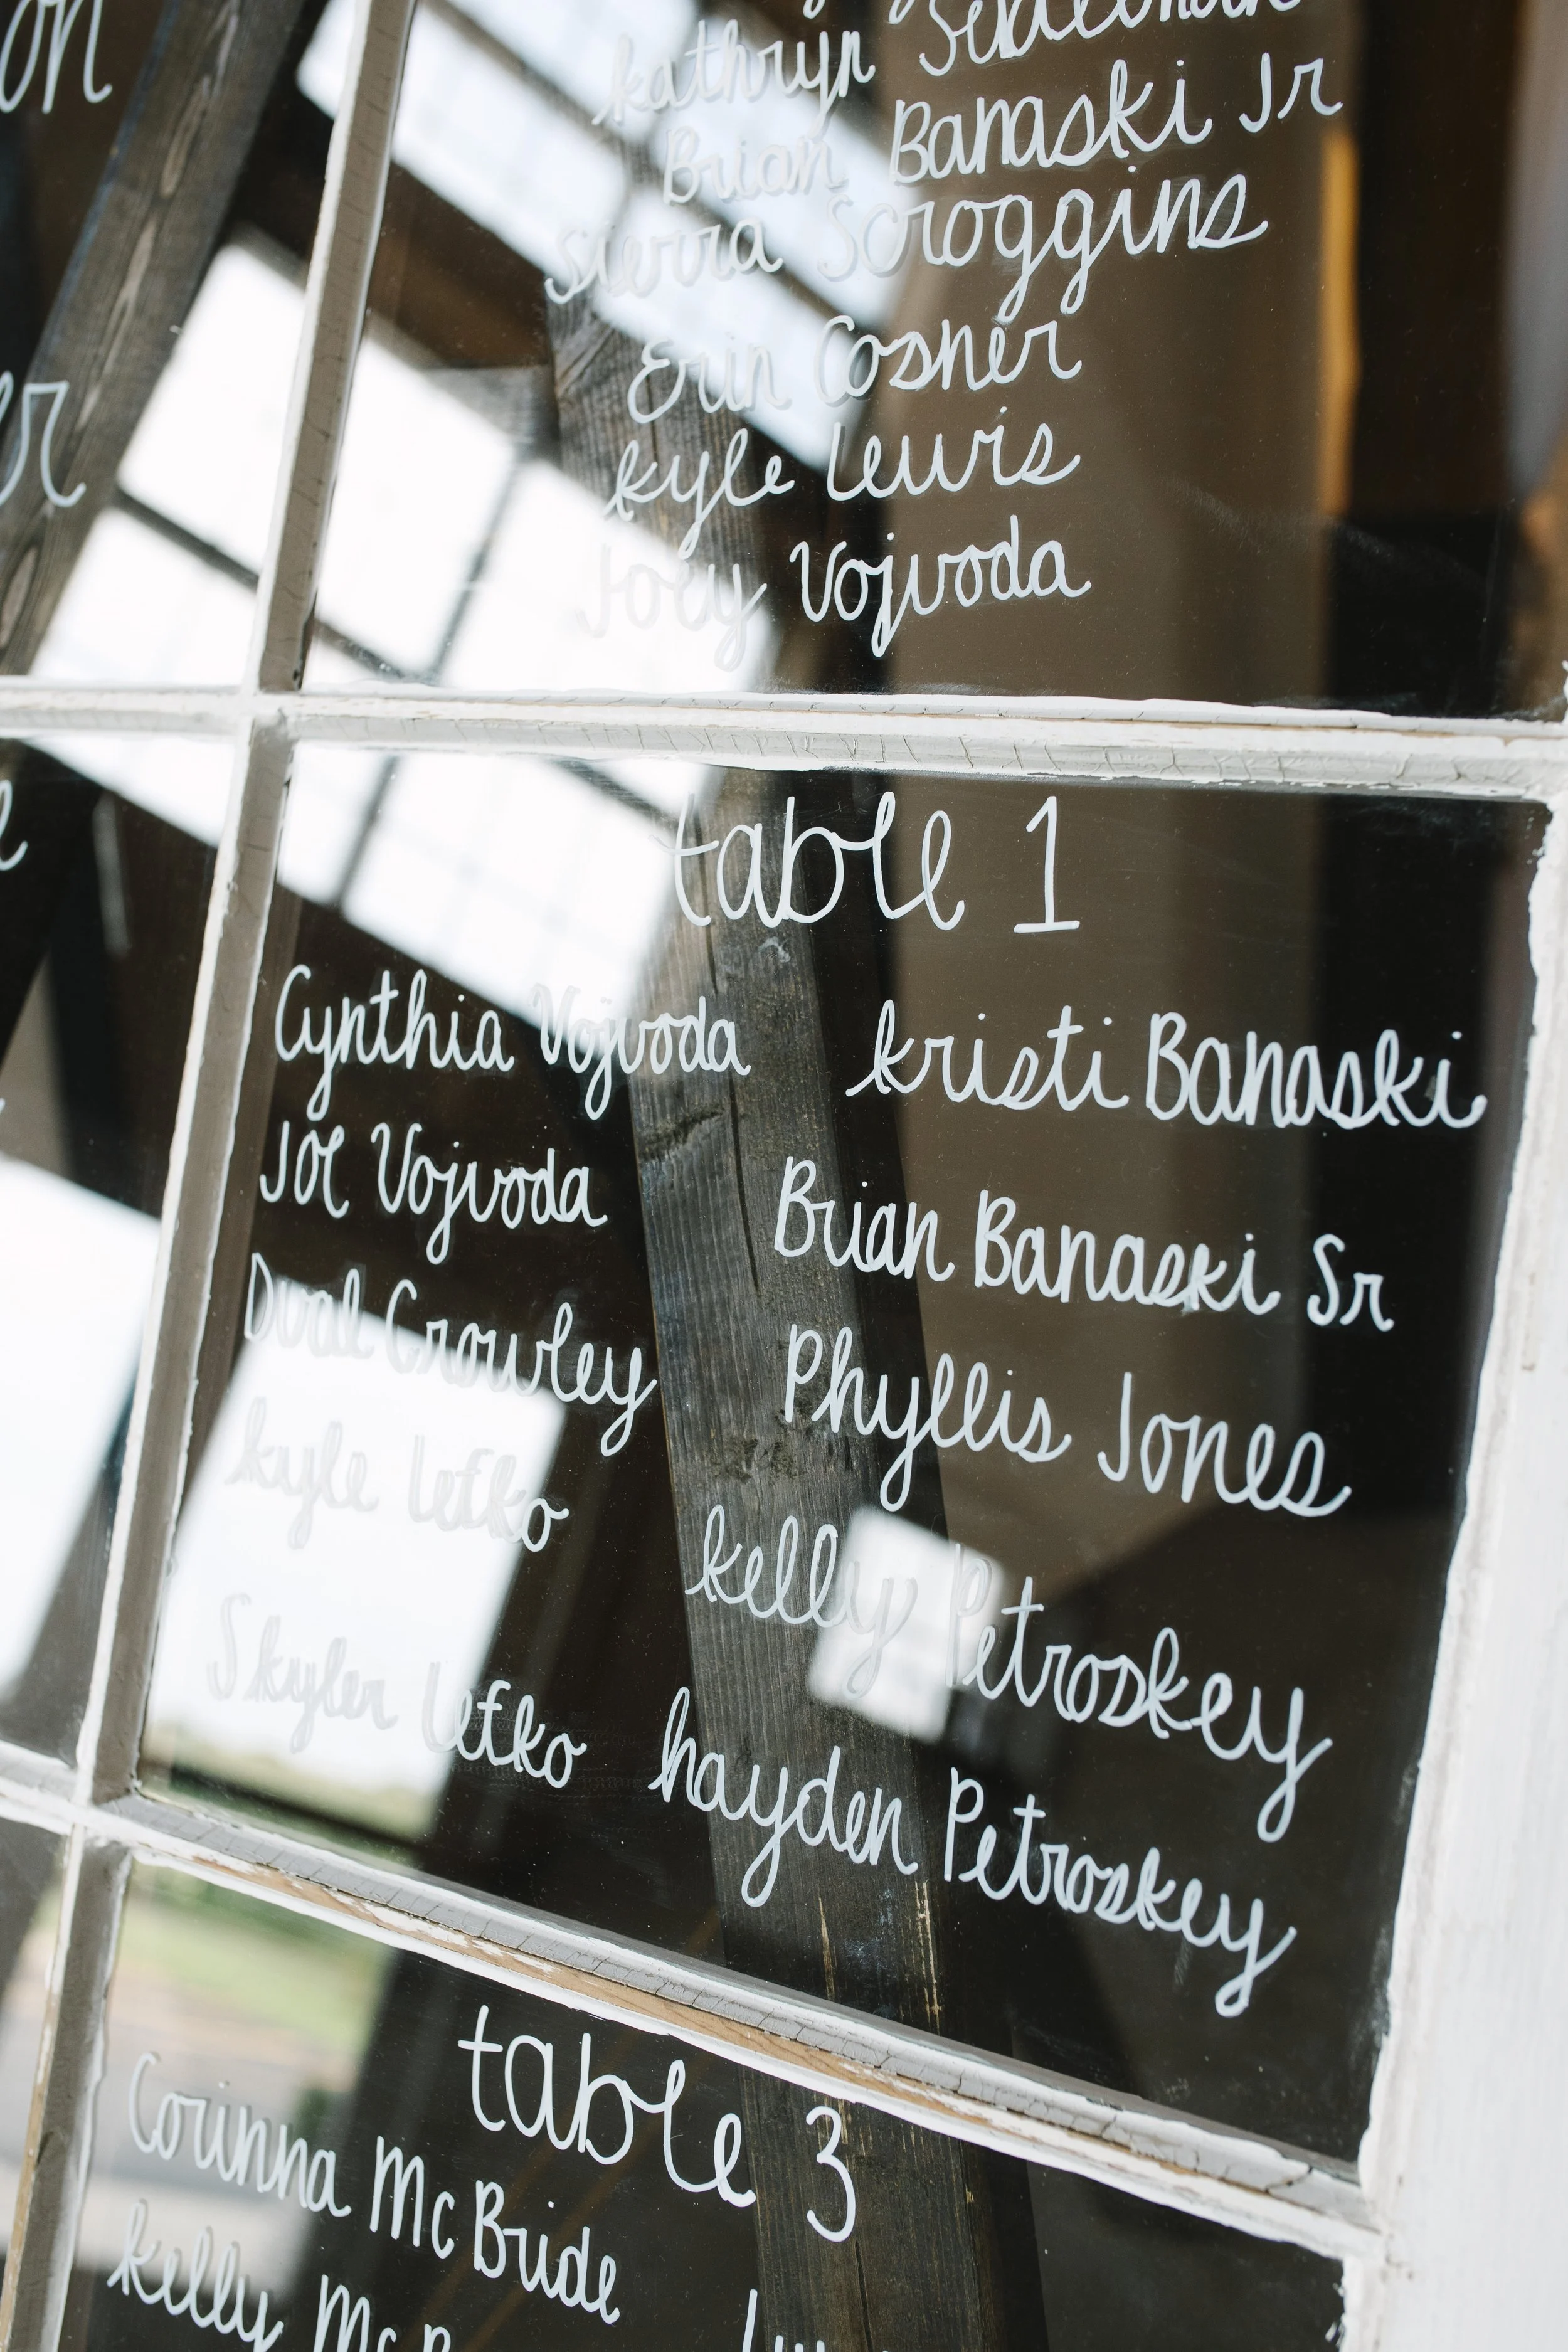 on
er
e
kathryn
Brian Banaski Jr
Sierra Scroggins
Erin Cosner
kyle Lewis
Joey Vojvoda
table 1
Cynthia Vojvoda
Joe Vojvoda
Crowley
kyle Lefko
Skyler Lefko
kristi Banaski
Brian Banaski Sr
Phyllis Jones
kelly Petroskey
hayden Petroskey
table 3
Corinna McBride
kelly